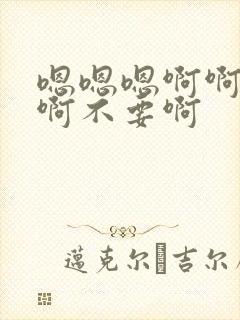 嗯嗯嗯啊啊
啊不要啊
邁克尔·吉尔